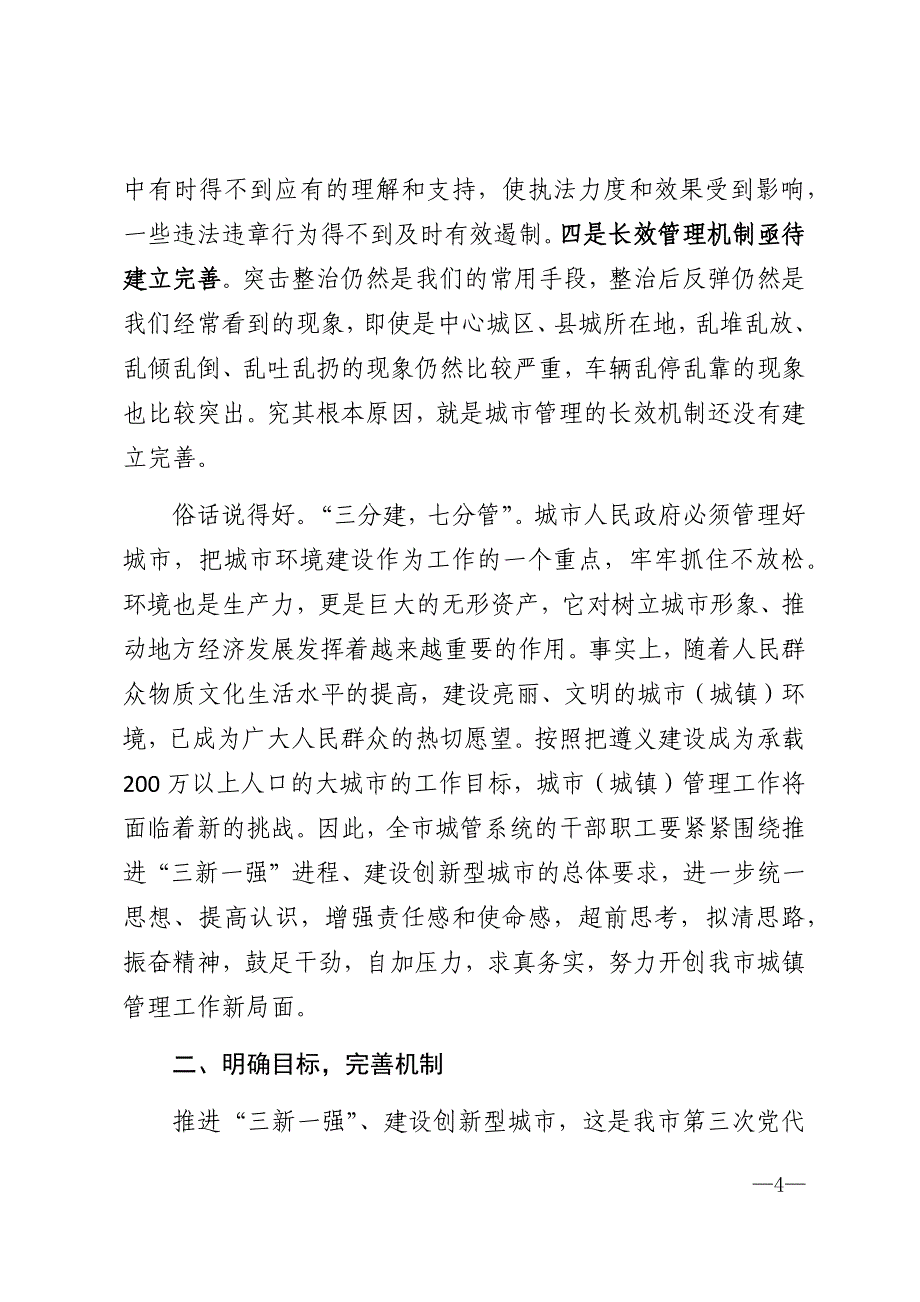 中有时得不到应有的理解和支持，使执法力度和效果受到影响，
一些违法违章行为得不到及时有效遏制。四是长效管理机制亟待
建立完善。突击整治仍然是我们的常用手段，整治后反弹仍然是
我们经常看到的现象，即使是中心城区、县城所在地，乱堆乱放、
乱倾乱倒、乱吐乱扔的现象仍然比较严重，车辆乱停乱靠的现象
也比较突出。究其根本原因，就是城市管理的长效机制还没有建
立完善。
俗话说得好。“三分建，七分管”。城市人民政府必须管理好
城市，把城市环境建设作为工作的一个重点，牢牢抓住不放松。
环境也是生产力，更是巨大的无形资产，它对树立城市形象、推
动地方经济发展发挥着越来越重要的作用。事实上，随着人民群
众物质文化生活水平的提高，建设亮丽、文明的城市（城镇）环
境，已成为广大人民群众的热切愿望。按照把遵义建设成为承载
200 万以上人口的大城市的工作目标，城市（城镇）管理工作将
面临着新的挑战。因此，全市城管系统的干部职工要紧紧围绕推
进“三新一强”进程、建设创新型城市的总体要求，进一步统一
思想、提高认识，增强责任感和使命感，超前思考，拟清思路，
振奋精神，鼓足干劲，自加压力，求真务实，努力开创我市城镇
管理工作新局面。
二、明确目标，完善机制
推进“三新一强”、建设创新型城市，这是我市第三次党代
—4—